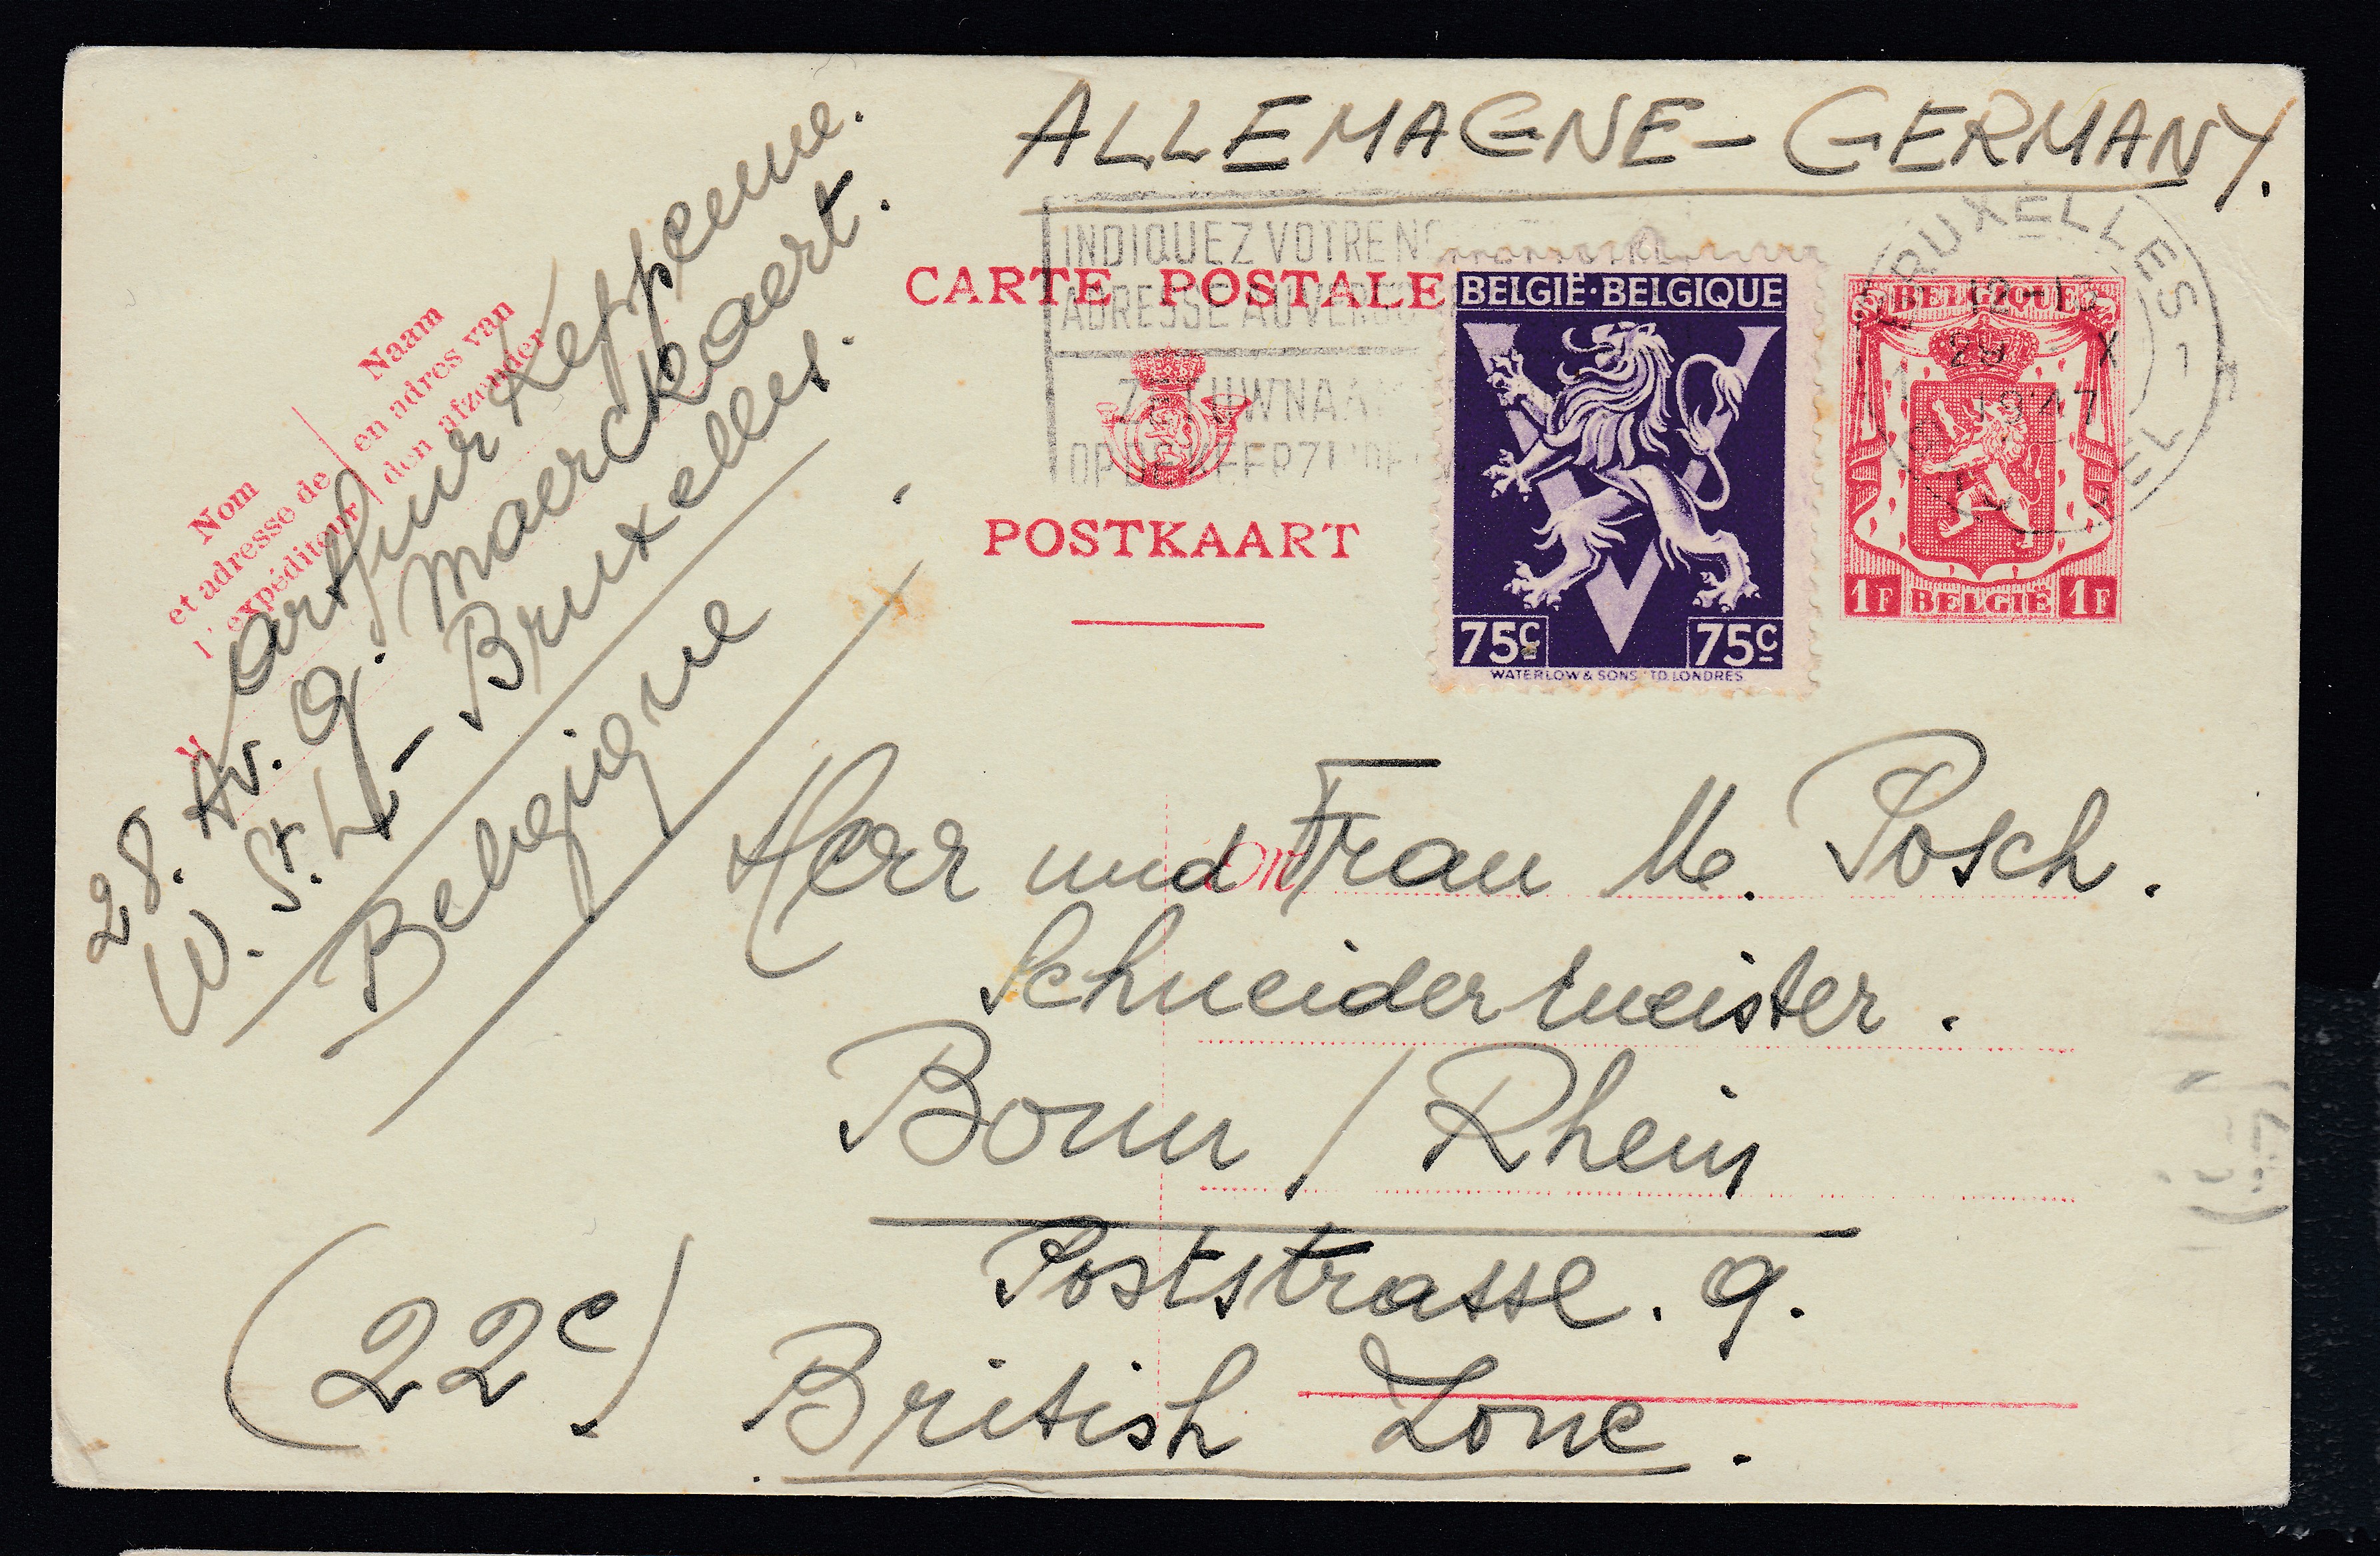 ALLEMAGNE - GERMANY.
INDIQUEZ VOTRE
ADRESSE AU
OP DE
CARTE POSTALE
POSTKAART
BELGIË·BELGIQUE
75C 75C
WATERLOW & SONS LTD LONDRES
BRUXELLES 1
12-
28 X
1947
1
BELGIQUE
1F BELGIE 1F
Naam
en adres van
den afzender
Nom
et adresse de
l'expéditeur
Arthur Keppenne.
28. Av. G. Maerckaert.
W. St. L - Bruxelles.
Belgique
Herr und Frau M. Posch.
Schneidermeister.
Bonn / Rhein
Poststrasse. 9.
(22c)
British Zone.